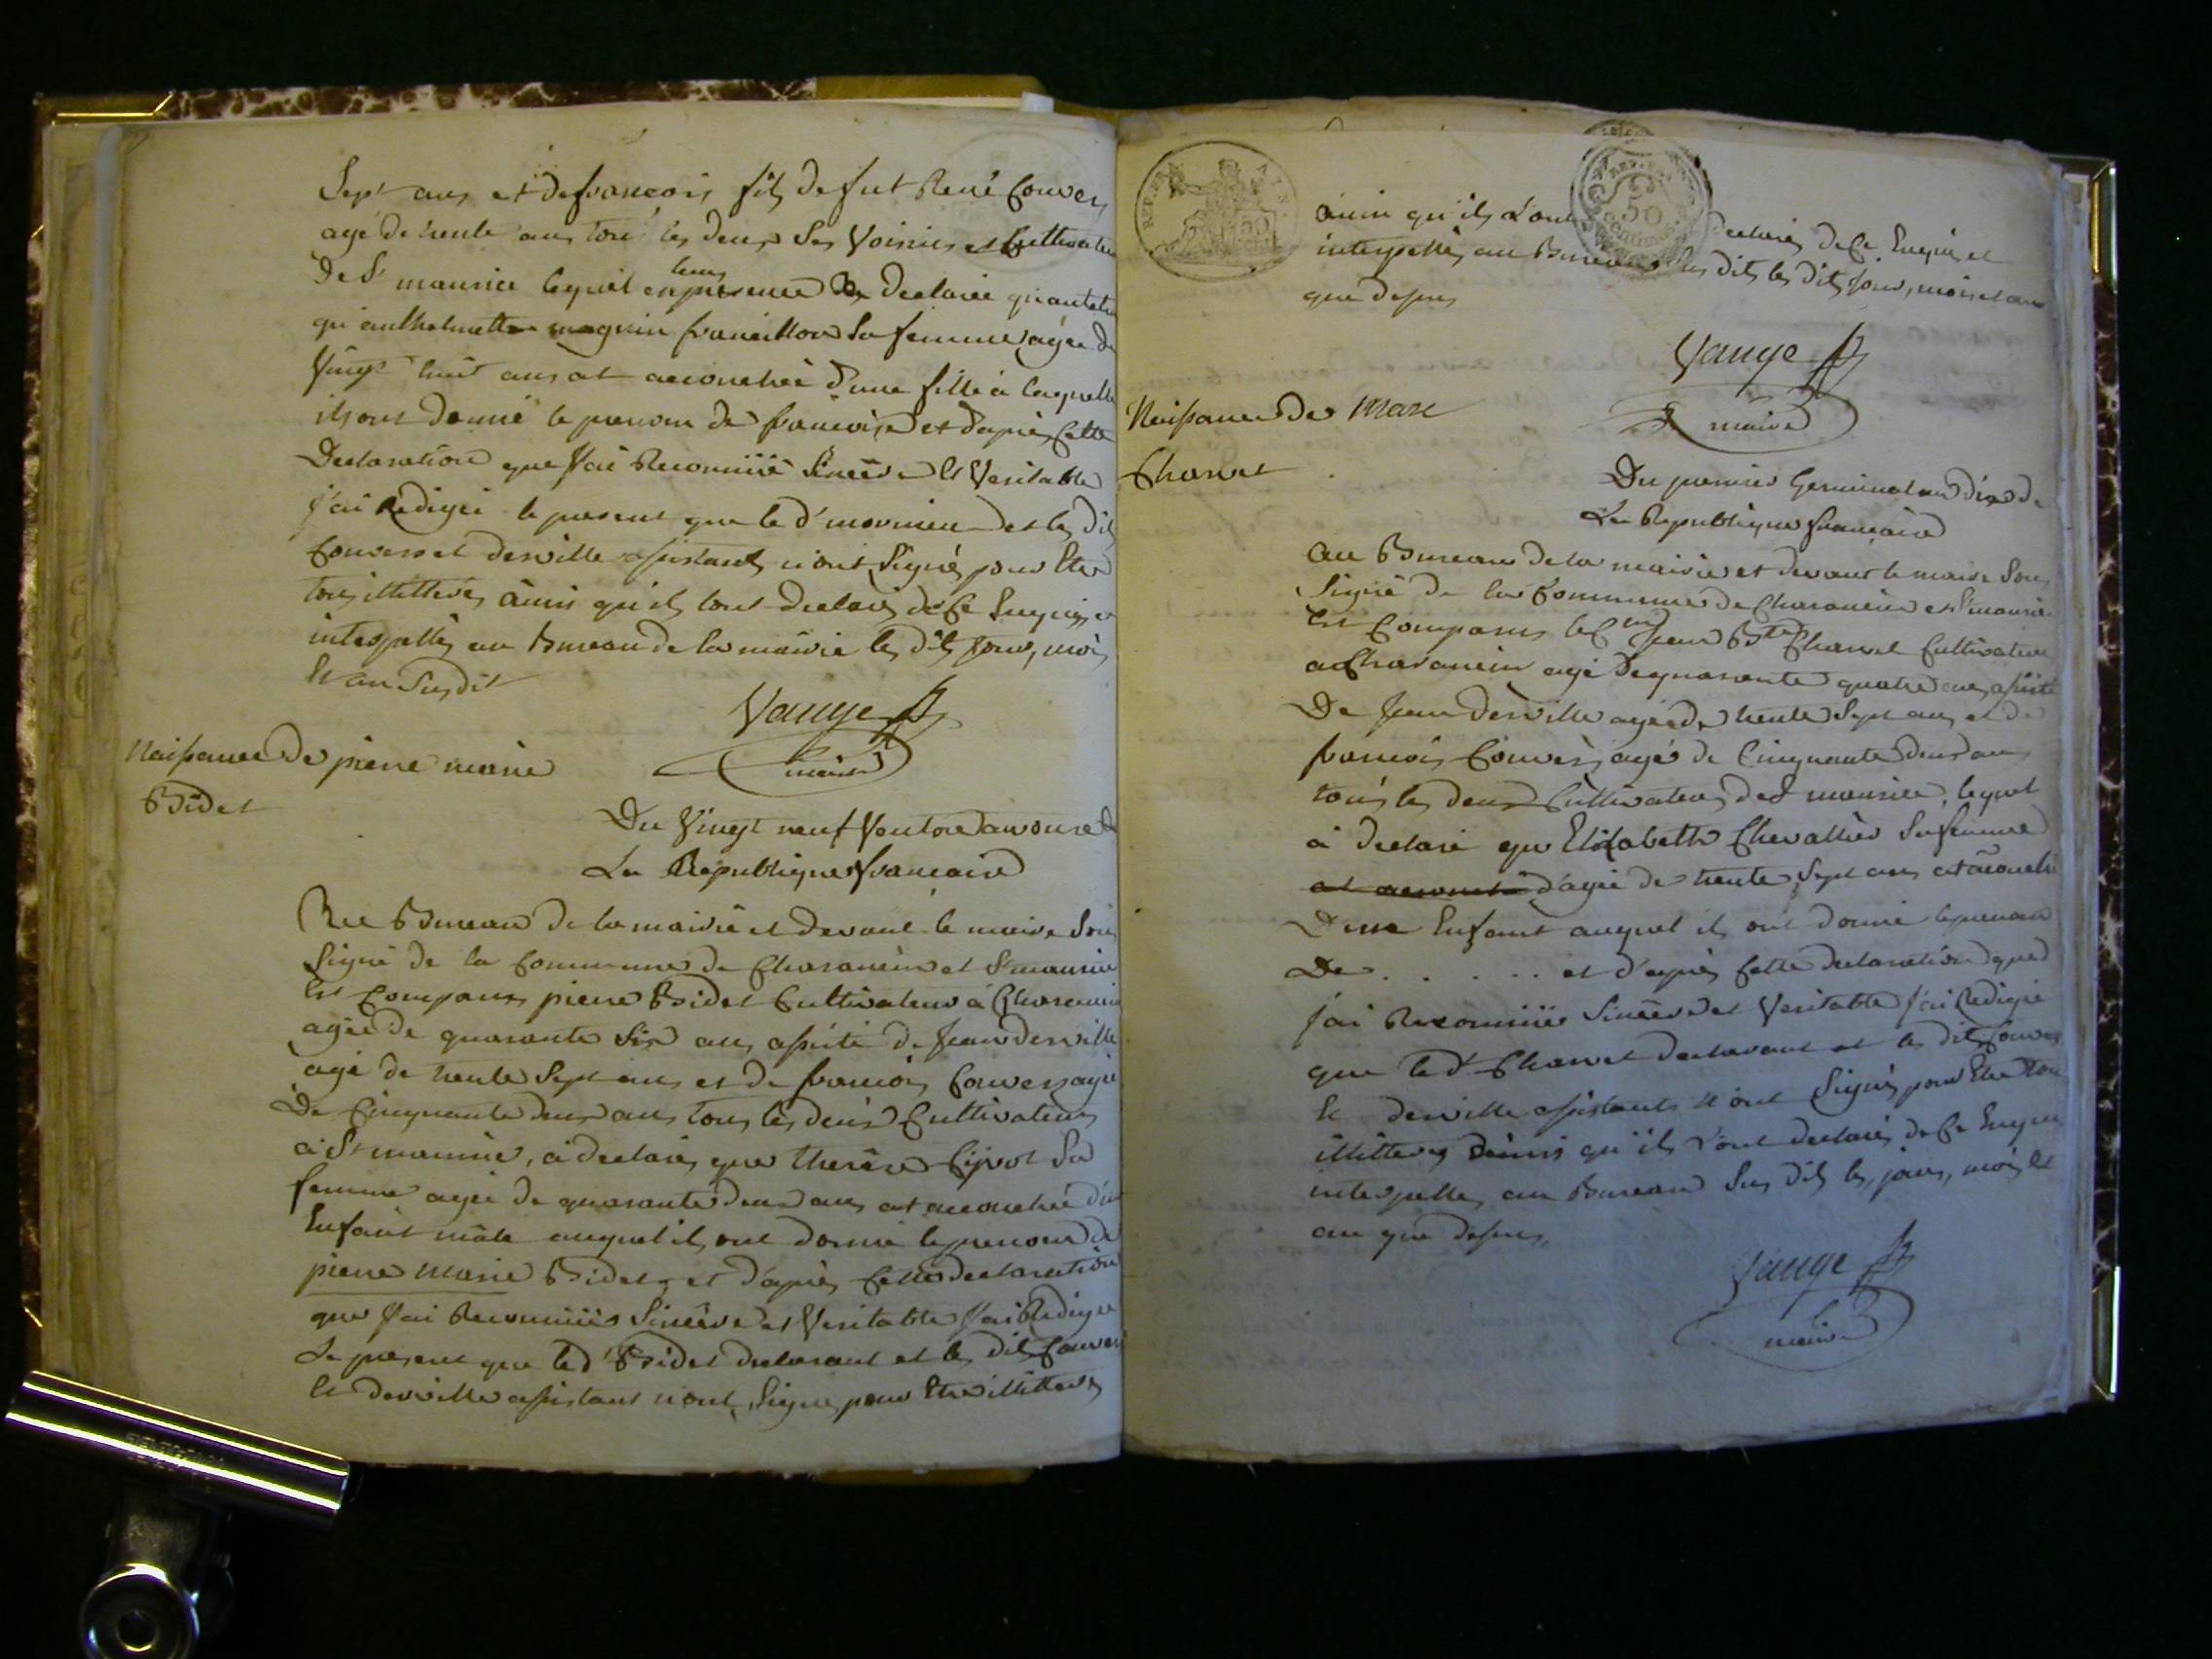 Sept ans et de francois fils de fut René Convers
agé de trente ans tous les deux ses Voisins et Cultivateurs
De St maurice lequel en leurs presence declaré
qu'anthelmette maguin sa femme agée de
Vingt huit ans at accouchée d'une fille à laquelle
ils ont donné le prenom de francoise et d'après Cette
Declaration que J'ai Reconnüe Sincère Et Veritable
j'ai Redigée le present que le dt et les dits
Convers et derville assistants n'ont Signés pour Etre
tous illitterés ainsi qu'ils l'ont declarés de Ce Enquis et
interpellés au Bureau de la mairie les dits Jour, mois
Et an Susdit
Vauge
maire
Naissance de pierre marie
Bidet
Du Vingt neuf Ventose an onze de
La Republique francaise
Au Bureau de la mairie et devant le maire Sous
Signé de la Commune de Charancin et St maurice
Est Comparus pierre Bidet Cultivateur à Charancin
agée de quarante Six ans assisté de Jean derville
agé de trente Sept ans et de francois Convers agé
De Cinquante deux ans tous les deux Cultivateurs
à St maurice, à declarés que therèse Sa
femme agée de quarante deux ans at accouchée d'un
Enfant mâle auquel ils ont donné le prenom de
pierre marie Bidet, et d'après Cette declaration
que J'ai Reconnüe Sincère et Veritable J'ai Redigée
Le present que le dt Bidet declarant et les dits Convers
Et derville assistant n'ont Signés pour Etre illitterés
REP. FRA. AIN. 50
REP. FRA. 50 centimes
ainsi qu'ils l'ont declarés de Ce Enquis et
interpellés au Bureau Sus dits les dits Jour, mois et an
que dessus
Vauge
maire
Naissance de Marc
Charvet
Du premier Germinal an de
La Republique francaise
Au Bureau de la mairie et devant le maire Sous
Signé de la Commune de Charancin et St maurice
Est Comparus le Cen jean Bte Charvet Cultivateur
a Charancin agé de quarante quatre ans assisté
De Jean derville agée de trente Sept ans et de
francois Convers agés de Cinquante deux ans
tous les deux Cultivateurs de St maurice, lequel
à declaré que Elizabeth Chevallier Sa femme
at accouché d'agée de trente Sept ans at accouché
D'une Enfant auquel ils ont donné le prenom
De . . . . . et d'après Cette declaration que
j'ai Reconnüe Sincère et Veritable J'ai Redigée
que le dt Charvet declarant et les dits Convers
Et derville assistants n'ont Signés pour Etre tous
illitterés ainsi qu'ils l'ont declarés de Ce Enquis
interpellés au Bureau Sus dits les, jours, mois Et
an que dessus,
Vauge
maire